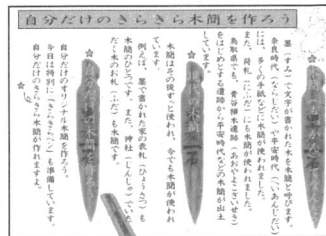 自分だけのきらきら木簡を作ろう
墨(すみ)で文字が書かれた木を木簡と呼びます。
奈良時代(ならじだい)や平安時代(へいあんじだい)
には、多くの手紙などに木簡が使われました。
また、荷札(にふだ)にも木簡が使われました。
鳥取県でも、青谷横木遺跡(あおやよこぎいせき)
をはじめとする遺跡から平安時代などの木簡が出土
しています。
木簡はその後ずっと使われ、今でも木簡が使われ
ています。
例えば、墨で書かれた家の表札(ひょうさつ)も
木簡のひとつです。また、神社(じんじゃ)でいた
だく木のお札(ふだ)も木簡です。
自分だけのオリジナル木簡を作ろう。
今日は特別に「きらきらペン」も準備しています。
自分だけのきらきら木簡が作れますよ。